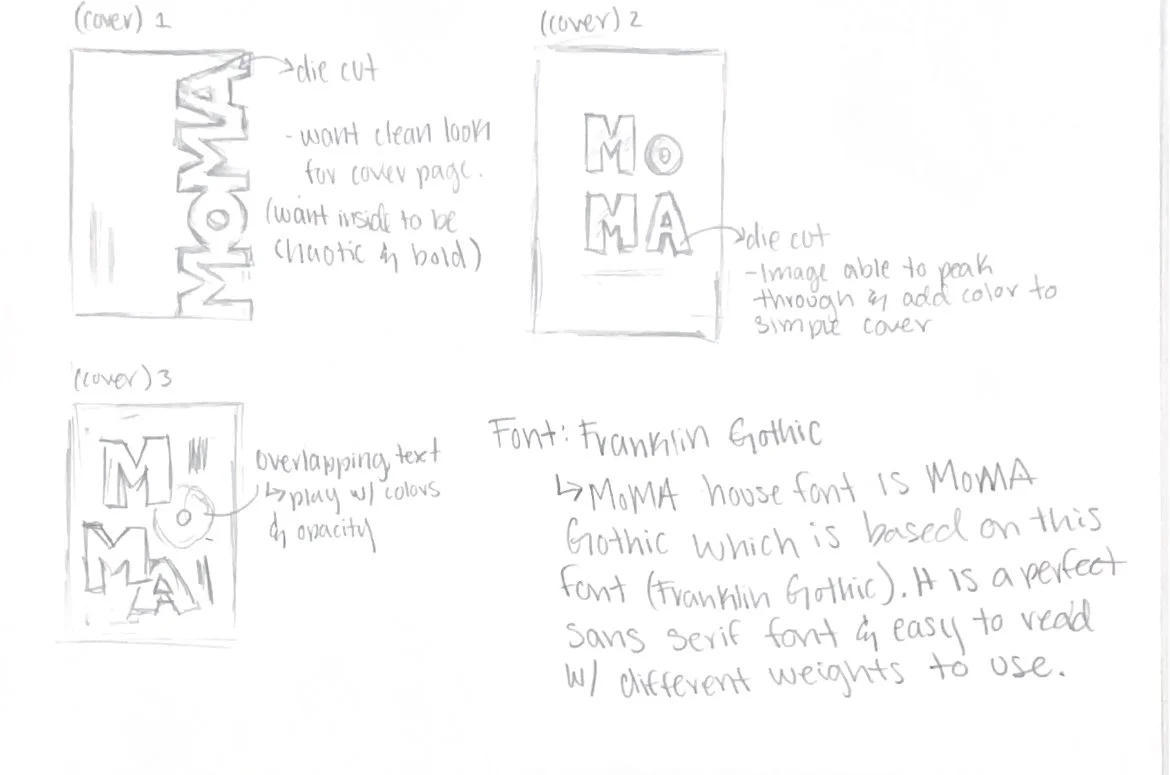 (cover) 1
MOMA
die cut
- want clean look
for cover page.
(want inside to be
chaotic & bold)
(cover) 2
Mo
MA
die cut
- Image able to peak
through & add color to
simple cover
(cover) 3
M
O
MA
overlapping text
↳ play w/ colors
& opacity
Font: Franklin Gothic
↳ MoMA house font is MoMA
Gothic which is based on this
font (Franklin Gothic). It is a perfect
sans serif font & easy to read
w/ different weights to use.